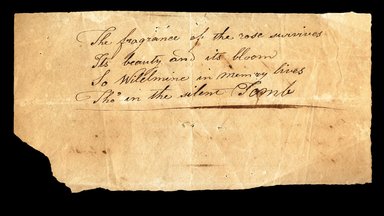 The fragrance of the rose survives
Its beauty and its bloom
So Wilelmine in memory lives
Tho' in the silent Tomb